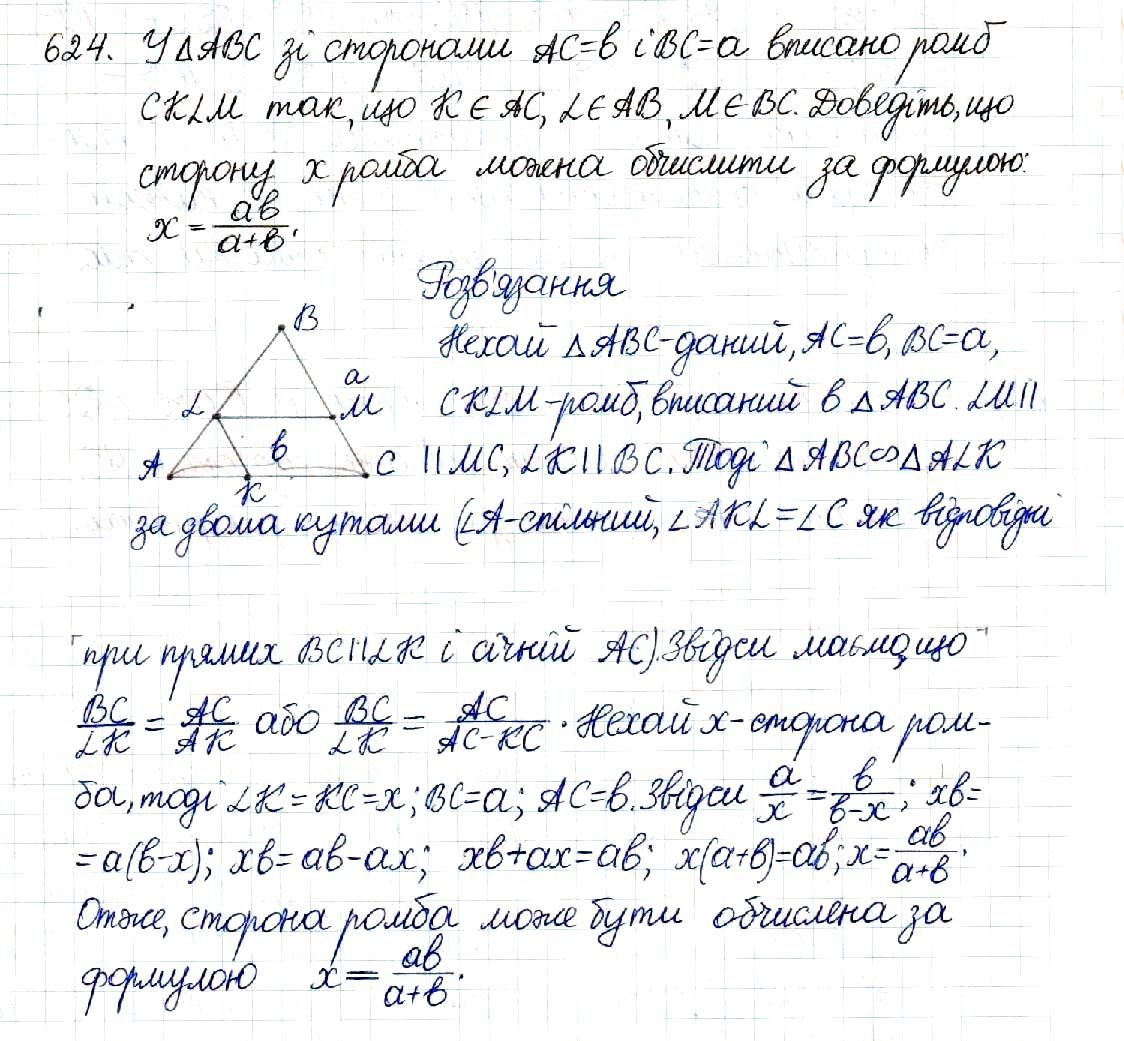 624. У △ABC зі сторонами AC=b і BC=a вписано ромб
CKLM так, що K∈AC, L∈AB, M∈BC. Доведіть, що
сторону x ромба можна обчислити за формулою:
x = ab/(a+b).
Розв'язання
B
a
L
M
b
A
C
K
Нехай △ABC-даний, AC=b, BC=a,
CKLM-ромб, вписаний в △ABC. LM||
||MC, LK||BC. Тоді △ABC∽△ALK
за двома кутами (∠A-спільний, ∠AKL=∠C як відповідні
при прямих BC||LK і січній AC). Звідси маємо, що
BC/LK = AC/AK або BC/LK = AC/(AC-KC). Нехай x-сторона ром-
ба, тоді LK=KC=x; BC=a; AC=b. Звідси a/x = b/(b-x); xb=
=a(b-x); xb=ab-ax; xb+ax=ab; x(a+b)=ab; x=ab/(a+b).
Отже, сторона ромба може бути обчислена за
формулою x = ab/(a+b).